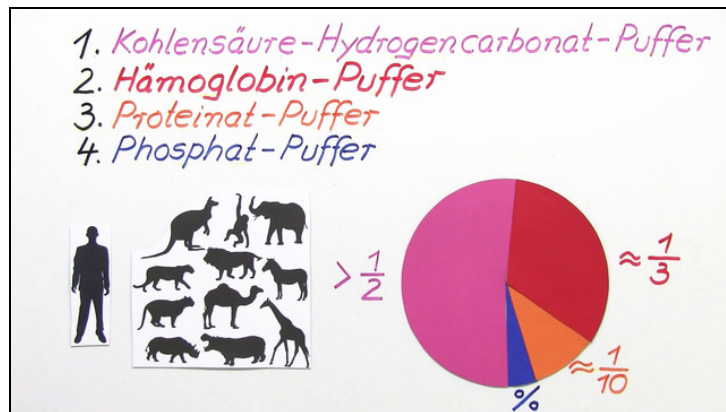 1. Kohlensäure-Hydrogencarbonat-Puffer
2. Hämoglobin-Puffer
3. Proteinat-Puffer
4. Phosphat-Puffer
> 1/2
≈ 1/3
≈ 1/10
%